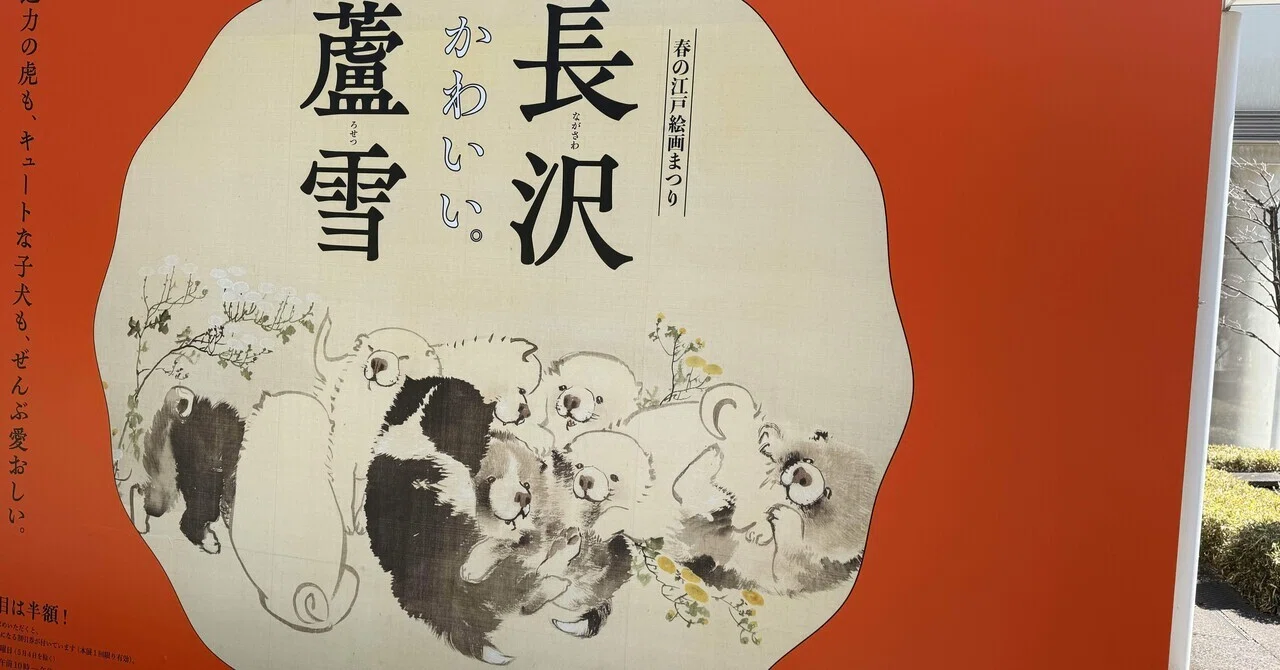 春の江戸絵画まつり
長沢
ながさわ
かわいい。
蘆雪
ろせつ
力の虎も、キュートな子犬も、ぜんぶ愛おしい。
目は半額!